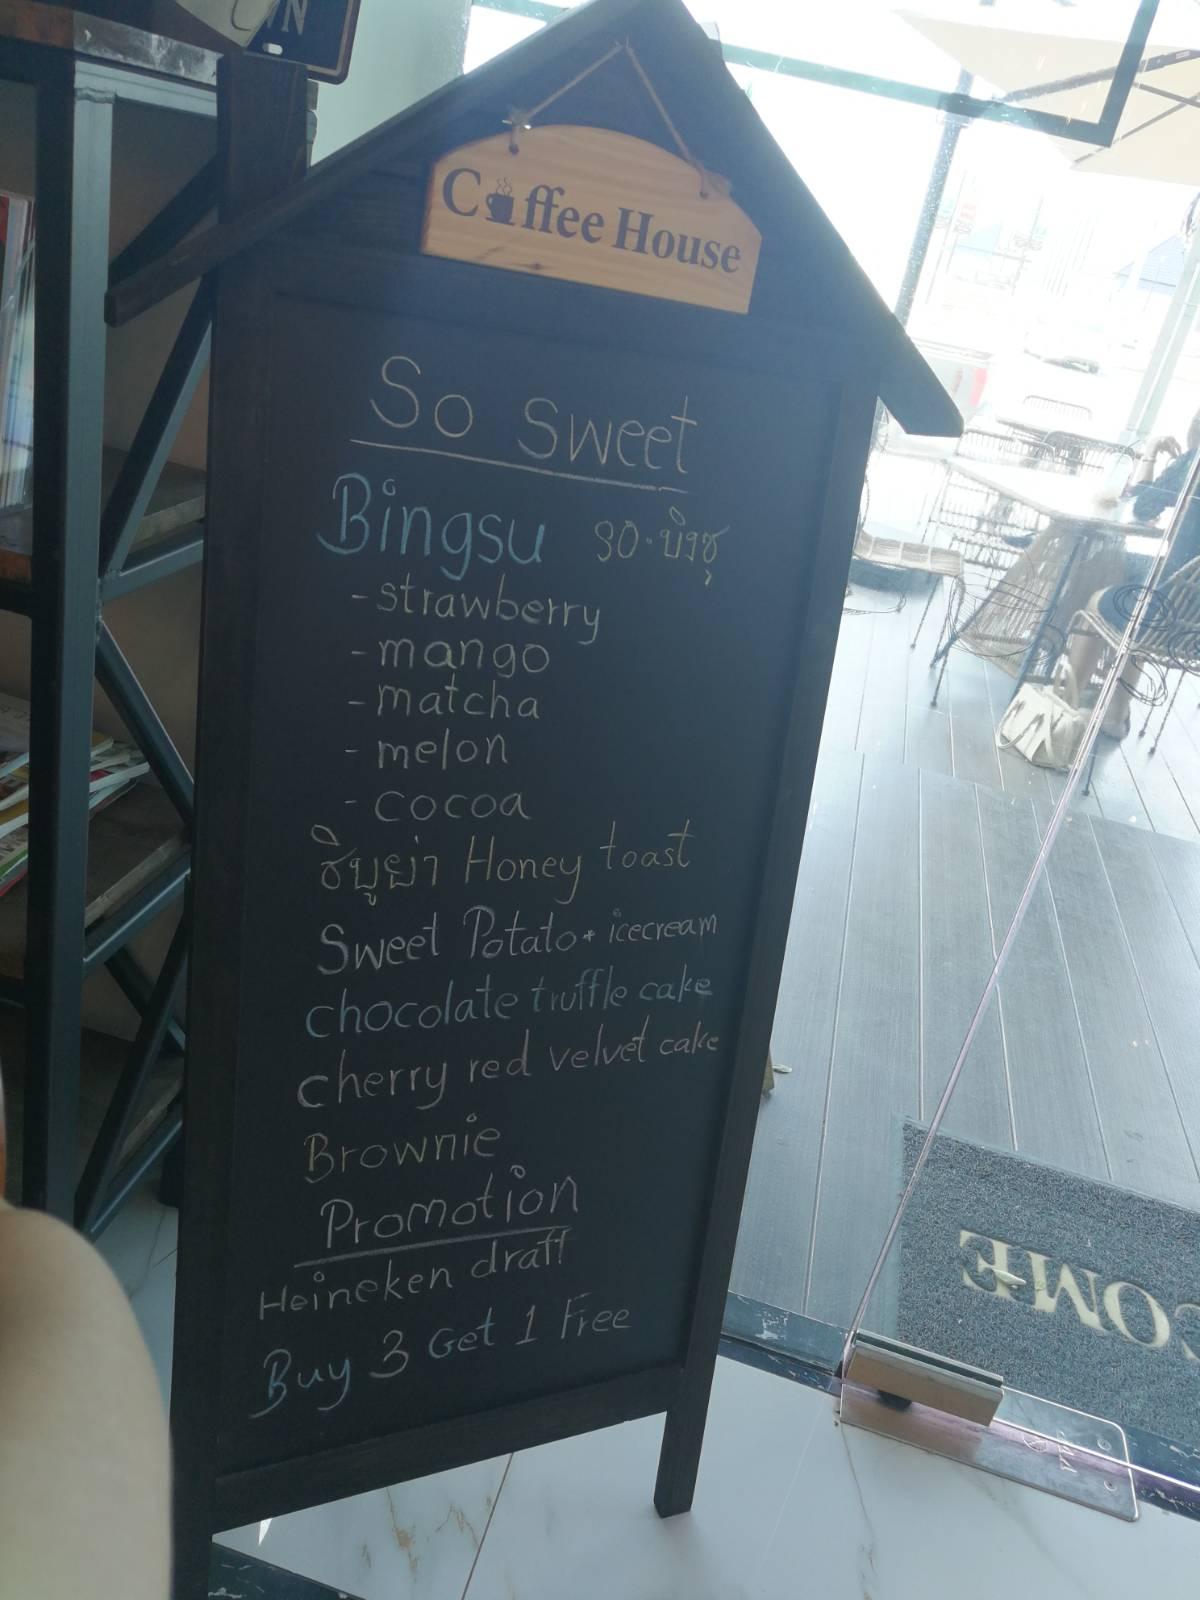 WN
Coffee House
So Sweet
Bingsu so.บิงซู
-strawberry
-mango
-matcha
-melon
-cocoa
ชิบูย่า Honey toast
Sweet Potato+icecream
chocolate truffle cake
cherry red velvet cake
Brownie
Promotion
Heineken draft
Buy 3 Get 1 Free
COME